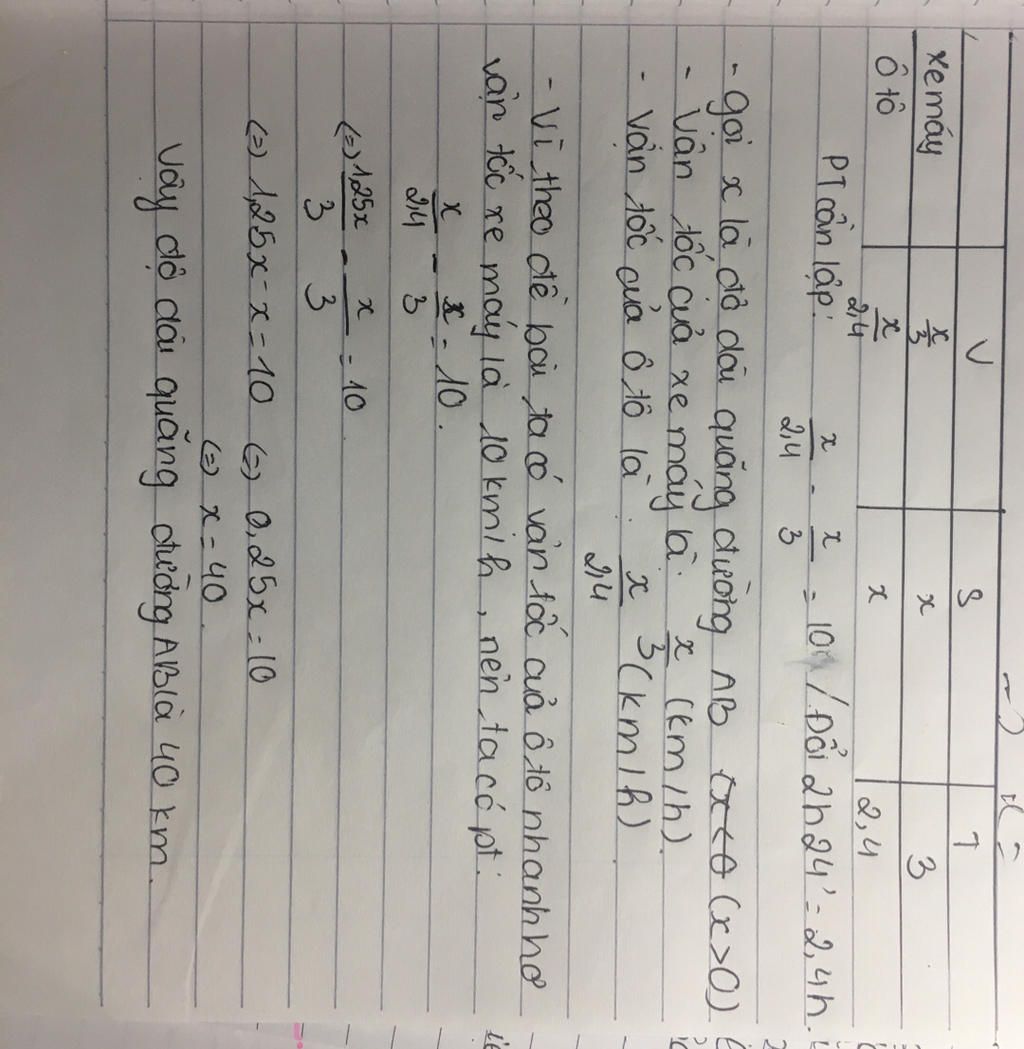 V S T
xe máy x/3 x 3
Ô tô x/2,4 x 2,4
PT cần lập: x/2,4 - x/3 = 10 / Đổi 2h24' = 2,4h.
- gọi x là độ dài quãng đường AB (x>0)
- Vận tốc của xe máy là: x/3 (km/h).
- Vận tốc của ô tô là: x/2,4 (km/h)
- Vì theo đề bài ta có vận tốc của ô tô nhanh hơ
vận tốc xe máy là 10 km/h, nên ta có pt:
x/2,4 - x/3 = 10.
(=) 1,25x/3 - x/3 = 10
(=) 1,25x - x = 10 (=) 0,25x = 10
(=) x = 40.
Vậy độ dài quãng đường AB là 40 km.